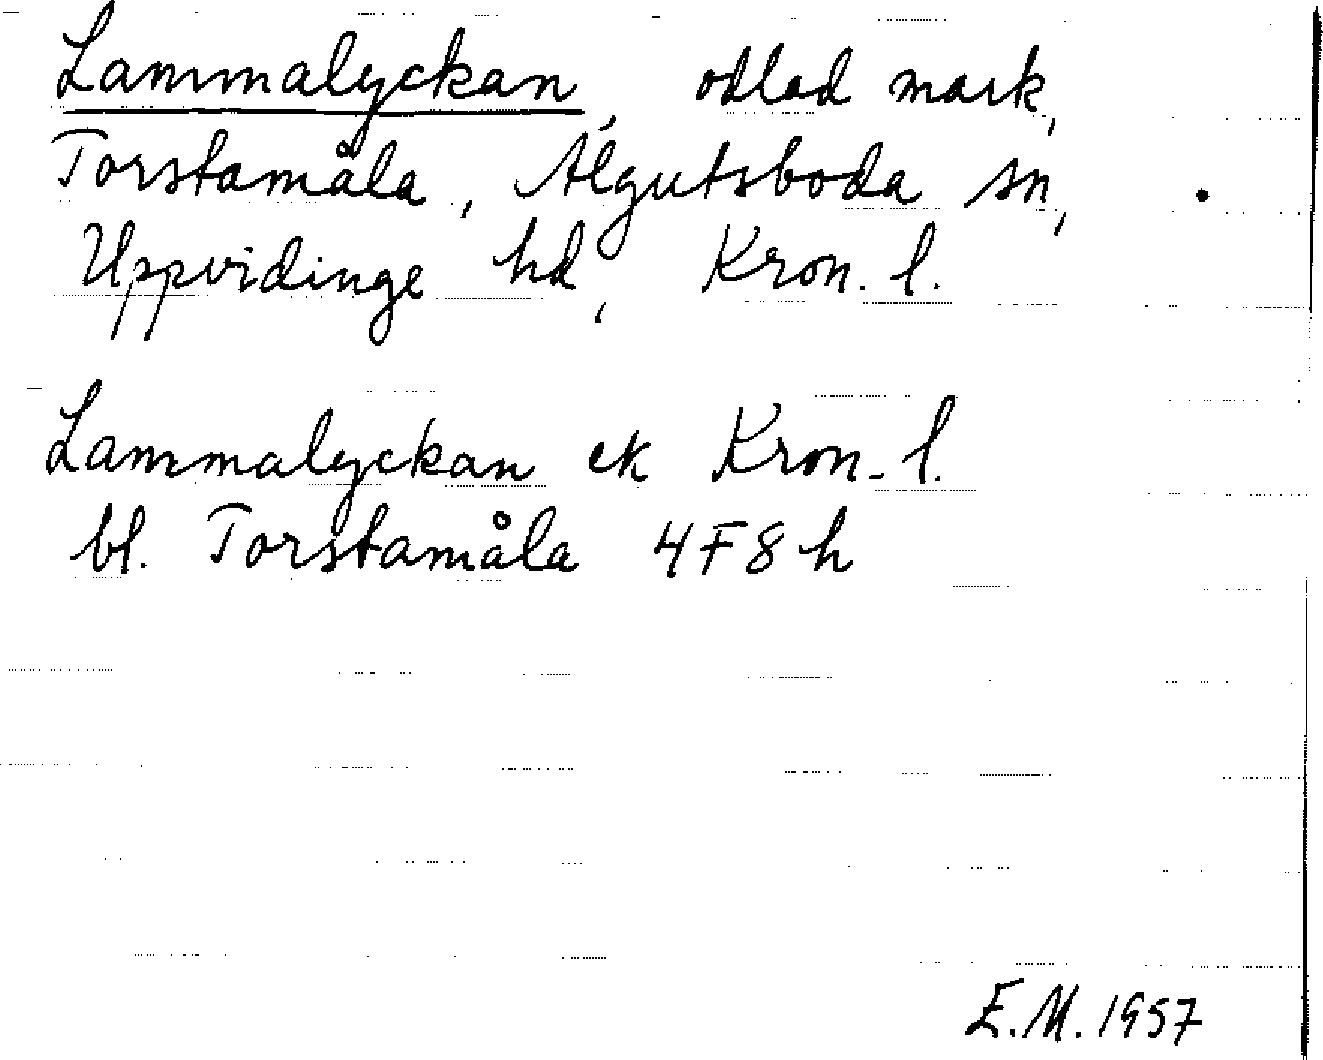 Lammalyckan, odlad mark,
Torstamåla, Algutsboda sn,
Uppvidinge hd, Kron. l.
Lammalyckan ek Kron. l.
bl. Torstamåla 4F8h
E.M. 1957